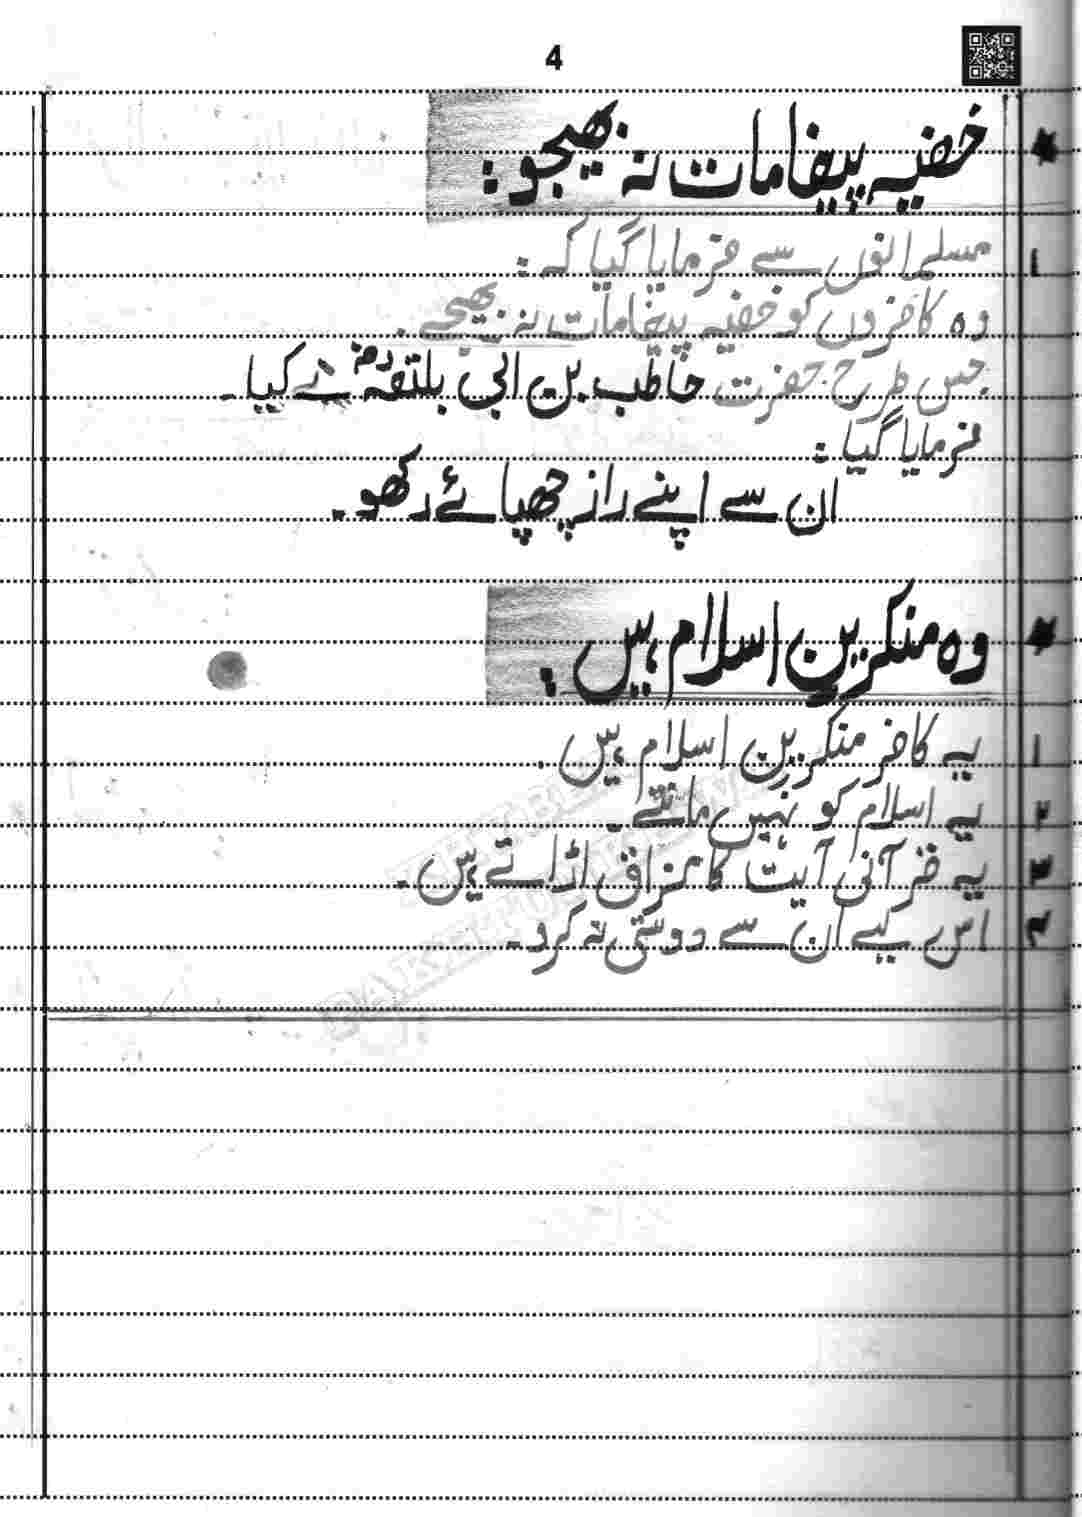 4
* خفیہ پیغامات نہ بھیجو:
۱ مسلمانوں سے فرمایا گیا کہ:
وہ کافروں کو خفیہ پیغامات نہ بھیجے.
جس طرح حضرت حاطب بن ابی بلتقہؓ نے کیا۔
فرمایا گیا:
ان سے اپنے راز چھپائے رکھو۔
* وہ منکرین اسلام ہیں:
۱ یہ کافر منکرین اسلام ہیں.
۲ یہ اسلام کو نہیں مانتے۔
۳ یہ قرآنی آیت کا مزاق اڑاتے ہیں۔
۴ اس لیے ان سے دوستی نہ کرو۔